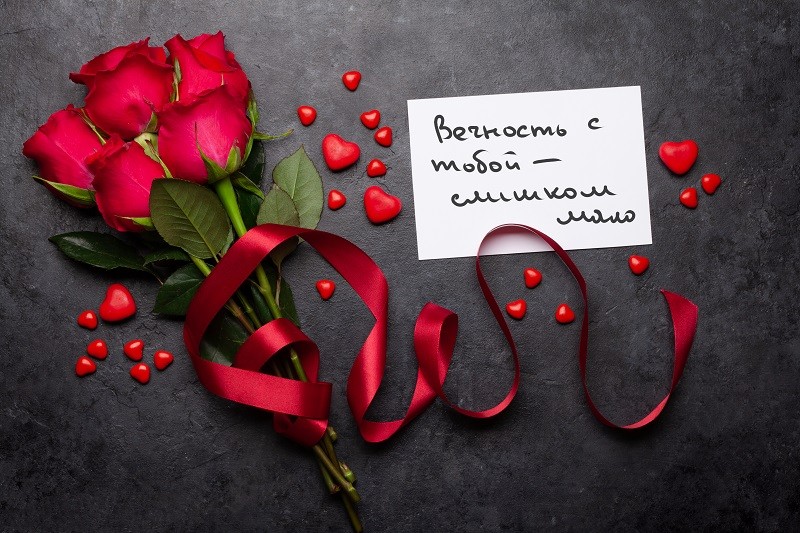 Вечность с
тобой —
слишком
мало